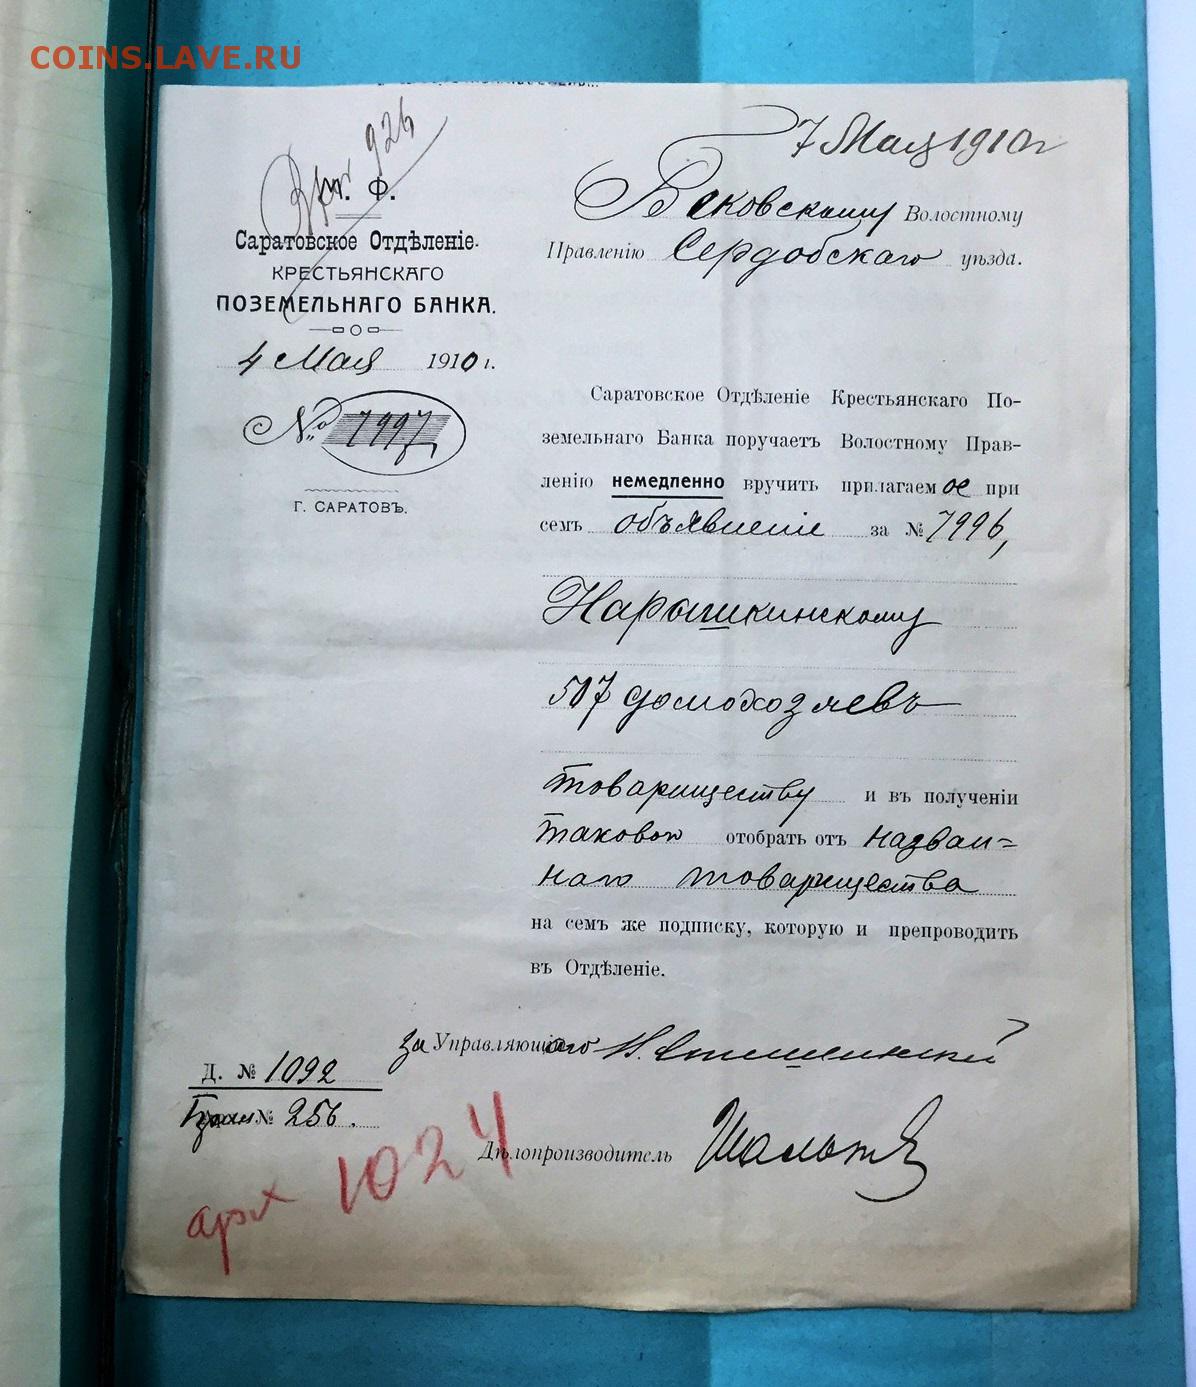 COINS.LAVE.RU
926
М. Ф.
Саратовское Отдѣленіе
КРЕСТЬЯНСКАГО
ПОЗЕМЕЛЬНАГО БАНКА.
4 Мая 1910 г.
№ 7997
Г. САРАТОВЪ.
7 Мая 1910 г
Бековскому Волостному
Правленію Сердобскаго уѣзда.
Саратовское Отдѣленіе Крестьянскаго По-
земельнаго Банка поручаетъ Волостному Прав-
ленію немедленно вручить прилагаемое при
семъ объявленіе за № 7996,
Нарышкинскому
507 домохозяевъ
товариществу и въ полученіи
таковой отобрать отъ назван=
наго товарищества
на семъ же подписку, которую и препроводить
въ Отдѣленіе.
за Управляющаго Н.
Д. № 1092
№ 256.
Дѣлопроизводитель
арх 1024